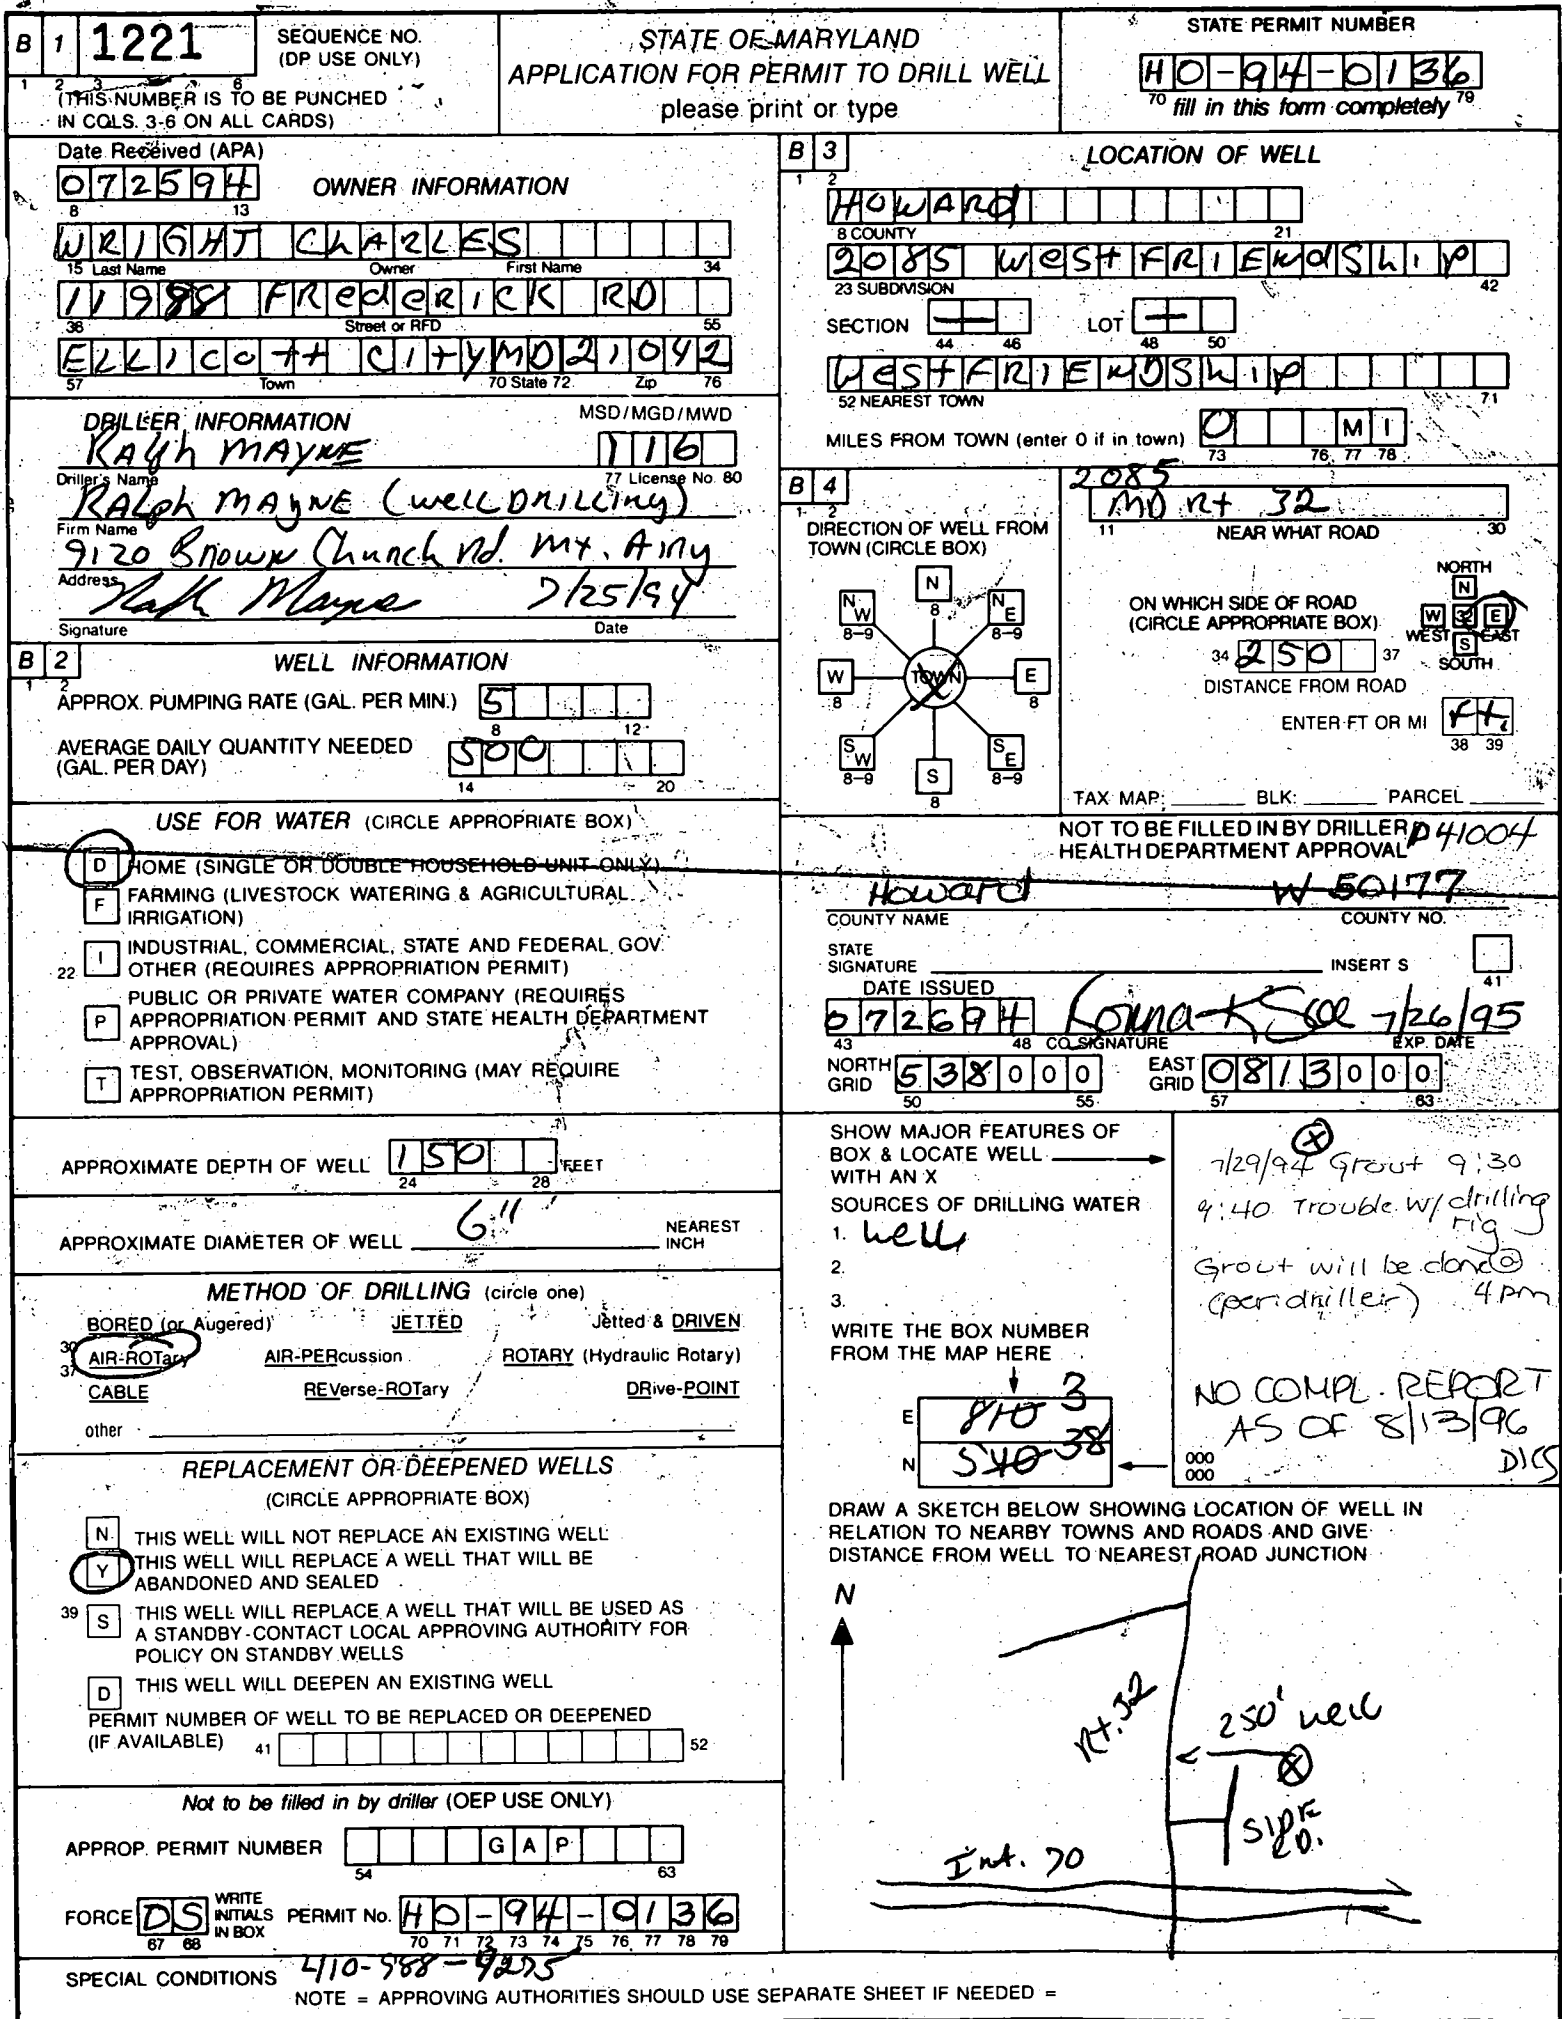 B 1 1221
SEQUENCE NO.
(DP USE ONLY)
1 2 3 6
(THIS NUMBER IS TO BE PUNCHED
IN COLS. 3-6 ON ALL CARDS)
STATE OF MARYLAND
APPLICATION FOR PERMIT TO DRILL WELL
please print or type
STATE PERMIT NUMBER
HO-94-0136
70 fill in this form completely 79
Date Received (APA)
072594
8 13
OWNER INFORMATION
WRIGHT CHARLES
15 Last Name Owner First Name 34
11988 FREdERICK RD
36 Street or RFD 55
ELLICott CityMD21042
57 Town 70 State 72 Zip 76
DRILLER INFORMATION
MSD/MGD/MWD
RAlph MAYNE 116
Driller's Name 77 License No. 80
RALph MAYNE (well DRILLing)
Firm Name
9120 Brown Church Rd. Mt. Airy
Address
Ralph Mayne 7/25/94
Signature Date
B 2 WELL INFORMATION
1 2
APPROX. PUMPING RATE (GAL. PER MIN.) 5
8 12
AVERAGE DAILY QUANTITY NEEDED
(GAL. PER DAY) 500
14 20
USE FOR WATER (CIRCLE APPROPRIATE BOX)
D HOME (SINGLE OR DOUBLE HOUSEHOLD UNIT ONLY)
F FARMING (LIVESTOCK WATERING & AGRICULTURAL
IRRIGATION)
22 I INDUSTRIAL, COMMERCIAL, STATE AND FEDERAL GOV.
OTHER (REQUIRES APPROPRIATION PERMIT)
P PUBLIC OR PRIVATE WATER COMPANY (REQUIRES
APPROPRIATION PERMIT AND STATE HEALTH DEPARTMENT
APPROVAL)
T TEST, OBSERVATION, MONITORING (MAY REQUIRE
APPROPRIATION PERMIT)
APPROXIMATE DEPTH OF WELL 150 FEET
24 28
APPROXIMATE DIAMETER OF WELL 6" NEAREST
INCH
METHOD OF DRILLING (circle one)
BORED (or Augered) JETTED Jetted & DRIVEN
30
AIR-ROTary AIR-PERcussion ROTARY (Hydraulic Rotary)
37
CABLE REVerse-ROTary DRive-POINT
other
REPLACEMENT OR DEEPENED WELLS
(CIRCLE APPROPRIATE BOX)
N THIS WELL WILL NOT REPLACE AN EXISTING WELL
Y THIS WELL WILL REPLACE A WELL THAT WILL BE
ABANDONED AND SEALED
39 S THIS WELL WILL REPLACE A WELL THAT WILL BE USED AS
A STANDBY-CONTACT LOCAL APPROVING AUTHORITY FOR
POLICY ON STANDBY WELLS
D THIS WELL WILL DEEPEN AN EXISTING WELL
PERMIT NUMBER OF WELL TO BE REPLACED OR DEEPENED
(IF AVAILABLE) 41 52
Not to be filled in by driller (OEP USE ONLY)
APPROP. PERMIT NUMBER GAP
54 63
FORCE DS WRITE
INITIALS
IN BOX
67 68
PERMIT No. HO-94-0136
70 71 72 73 74 75 76 77 78 79
SPECIAL CONDITIONS 410-988-9275
NOTE = APPROVING AUTHORITIES SHOULD USE SEPARATE SHEET IF NEEDED =
B 3 LOCATION OF WELL
1 2
HOWARd
8 COUNTY 21
2085 WeSt FRIENdShip
23 SUBDIVISION 42
SECTION — LOT —
44 46 48 50
WeSt FRIENDShip
52 NEAREST TOWN 71
MILES FROM TOWN (enter 0 if in town) 0 MI
73 76 77 78
B 4
1 2
DIRECTION OF WELL FROM
TOWN (CIRCLE BOX)
N
8
NW NE
8-9 8-9
W TOWN E
8 8
SW SE
8-9 8-9
S
8
2085
MD Rt 32
11 NEAR WHAT ROAD 30
ON WHICH SIDE OF ROAD
(CIRCLE APPROPRIATE BOX)
NORTH
N
W 32 E
WEST EAST
S
SOUTH
34 250 37
DISTANCE FROM ROAD
ENTER FT OR MI Ft.
38 39
TAX MAP: BLK: PARCEL
NOT TO BE FILLED IN BY DRILLER
HEALTH DEPARTMENT APPROVAL P41004
Howard W 50177
COUNTY NAME COUNTY NO.
STATE
SIGNATURE INSERT S
41
DATE ISSUED
072694 7/26/95
43 48 CO. SIGNATURE EXP. DATE
NORTH
GRID 538000
50 55
EAST
GRID 0813000
57 63
SHOW MAJOR FEATURES OF
BOX & LOCATE WELL
WITH AN X
SOURCES OF DRILLING WATER
1. well
2.
3.
WRITE THE BOX NUMBER
FROM THE MAP HERE
E 810 3
N 540 38
X
7/29/94 Grout 9:30
9:40 Trouble w/ drilling
rig
Grout will be done @
(per driller) 4 pm
NO COMPL. REPORT
AS OF 8/13/96
000
000
DRAW A SKETCH BELOW SHOWING LOCATION OF WELL IN
RELATION TO NEARBY TOWNS AND ROADS AND GIVE
DISTANCE FROM WELL TO NEAREST ROAD JUNCTION
N
Rt. 32
250' well
SIDE
RD.
Int. 70